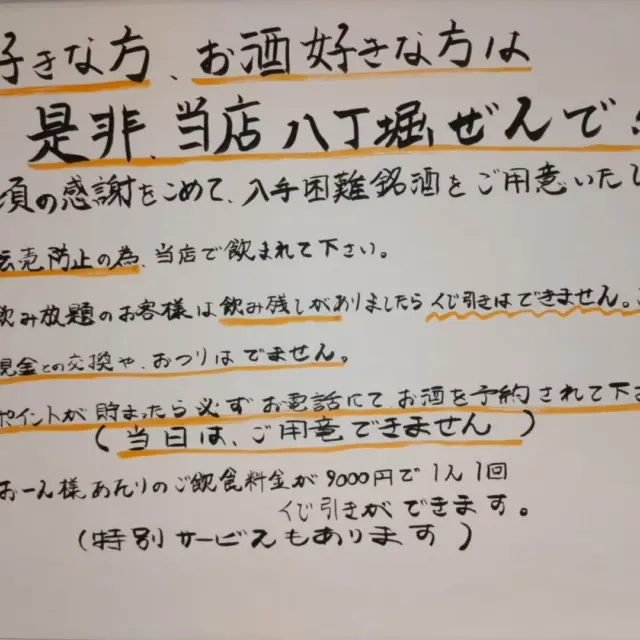 好きな方、お酒好きな方は
是非、当店 八丁堀ぜんで
頃の感謝をこめて、入手困難銘酒をご用意いたし
転売防止の為、当店で飲まれて下さい。
飲み放題のお客様は飲み残しがありましたらくじ引きはできません。
現金との交換や、おつりはでません。
ポイントが貯まったら必ずお電話にてお酒を予約されて下さ
(当日は、ご用意できません)
お一人様あたりのご飲食料金が9000円で1人1回
くじ引きができます。
(特別サービスもあります)